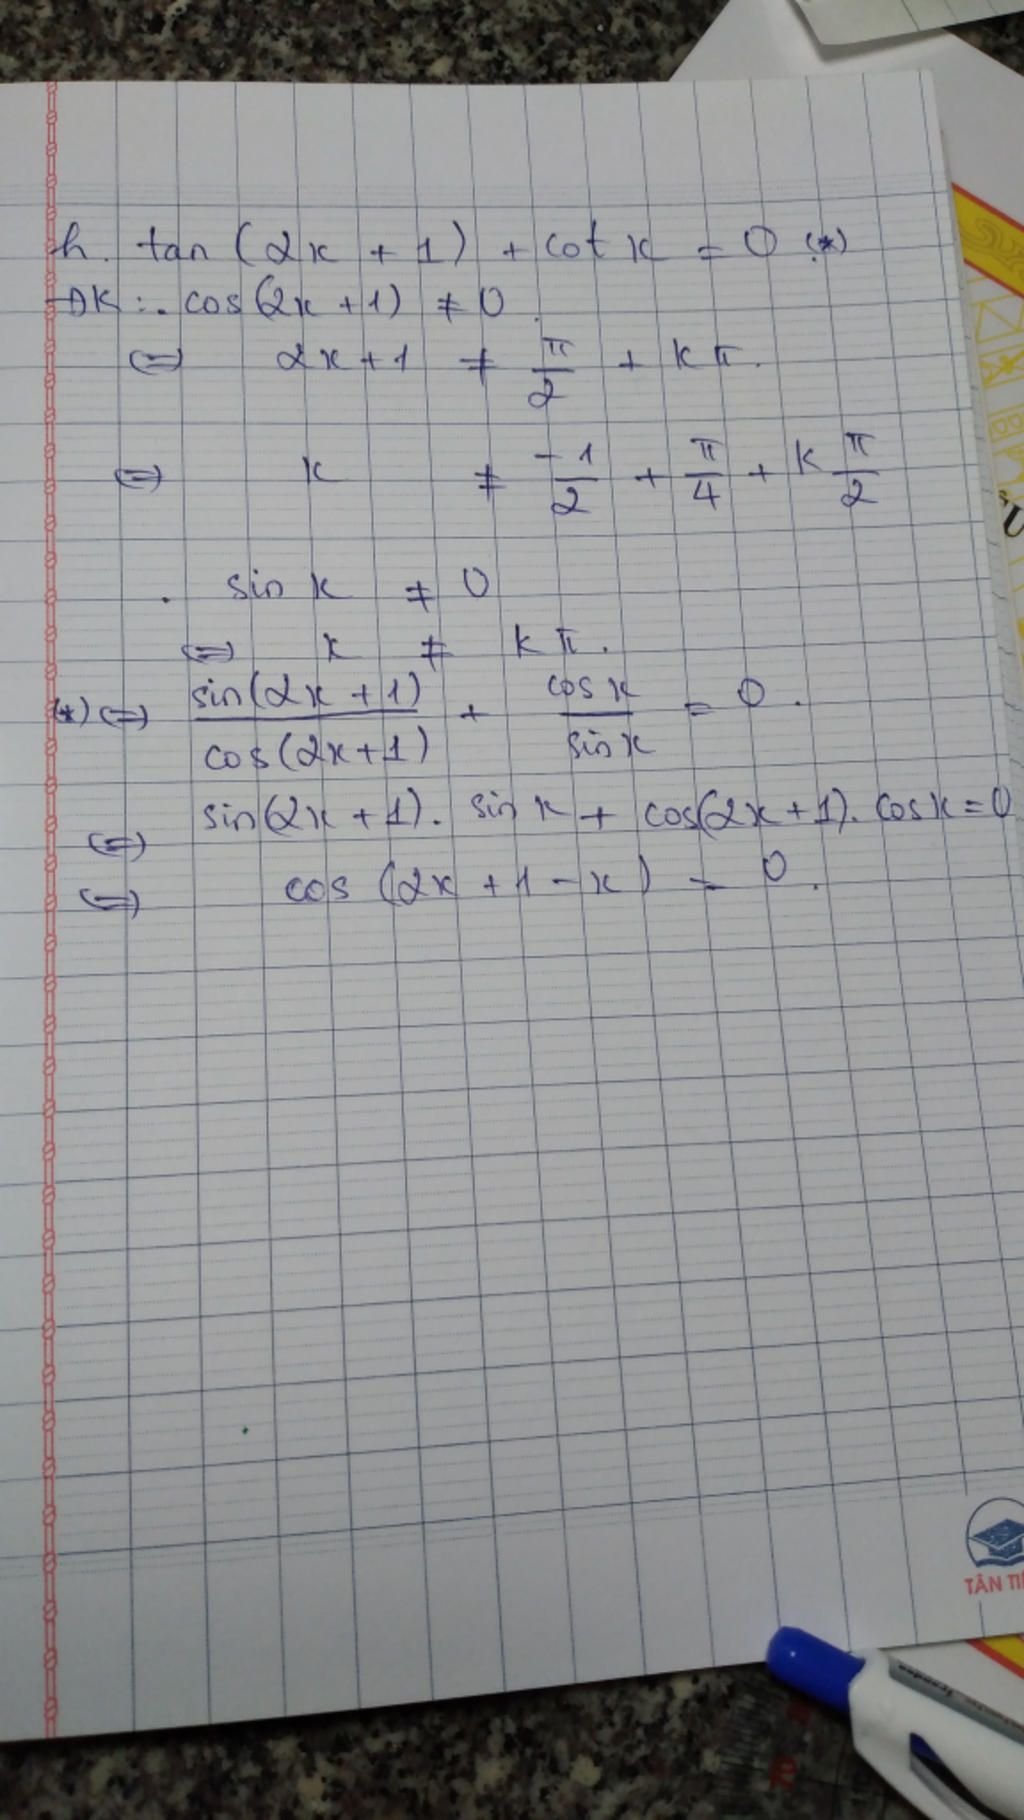 h. tan (2x + 1) + cot x = 0 (*)
ĐK: . cos(2x + 1) ≠ 0.
<=> 2x + 1 ≠ π/2 + kπ.
<=> x ≠ -1/2 + π/4 + k π/2
. sin x ≠ 0
<=> x ≠ kπ.
(*) <=> sin(2x + 1)/cos(2x + 1) + cos x/sin x = 0.
<=> sin(2x + 1). sin x + cos(2x + 1). cos x = 0
<=> cos (2x + 1 - x) = 0.
TÂN TI